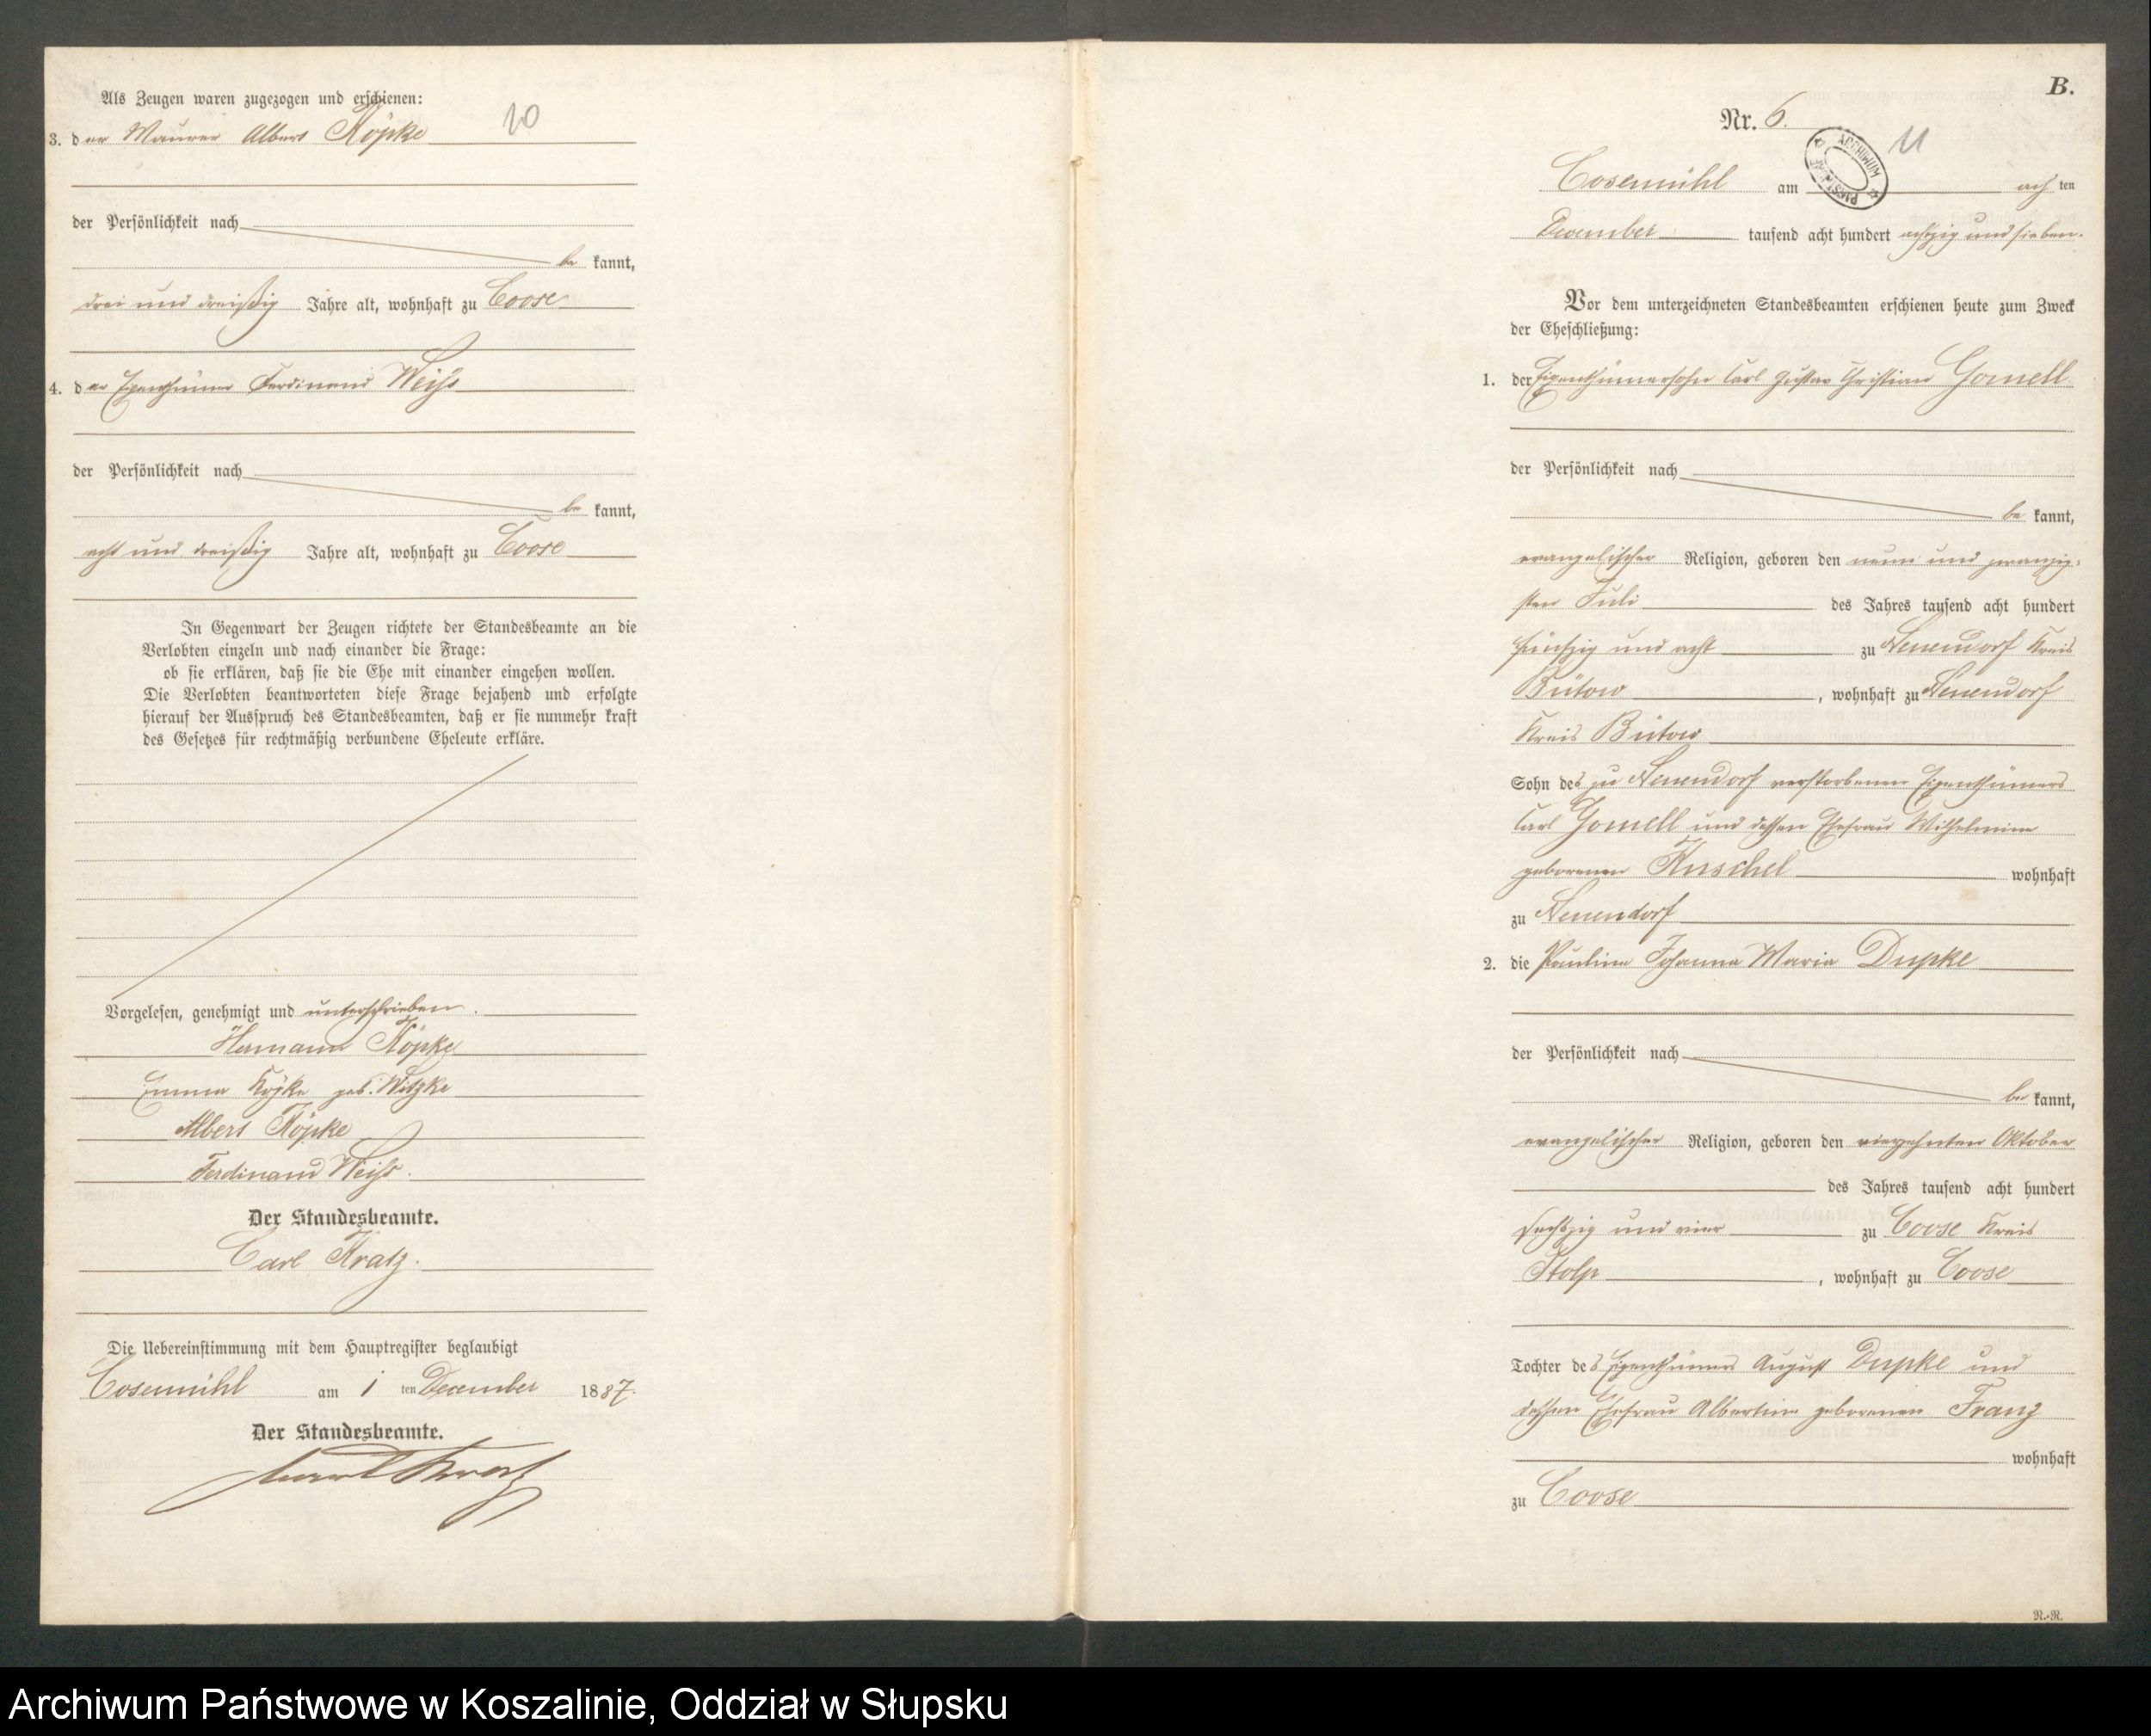 Als Zeugen waren zugezogen und erschienen:
10
3. der Maurer Albert Köpke
der Persönlichkeit nach
be kannt,
drei und dreißig Jahre alt, wohnhaft zu Coose
4. der Eigenthümer Ferdinand Weiß
der Persönlichkeit nach
be kannt,
acht und dreißig Jahre alt, wohnhaft zu Coose
In Gegenwart der Zeugen richtete der Standesbeamte an die
Verlobten einzeln und nach einander die Frage:
ob sie erklären, daß sie die Ehe mit einander eingehen wollen.
Die Verlobten beantworteten diese Frage bejahend und erfolgte
hierauf der Ausspruch des Standesbeamten, daß er sie nunmehr kraft
des Gesetzes für rechtmäßig verbundene Eheleute erkläre.
Vorgelesen, genehmigt und unterschrieben.
Hermann Köpke
Emma Köpke geb. Witzke
Albert Köpke
Ferdinand Weiß.
Der Standesbeamte.
Carl Kratz.
Die Uebereinstimmung mit dem Hauptregister beglaubigt
Cosemühl am 1 ten December 1887.
Der Standesbeamte.
Carl Kratz
B.
Nr. 6.
11
ARCHIWUM PAŃSTWOWE
Cosemühl am achten
December tausend acht hundert achtzig und sieben.
Vor dem unterzeichneten Standesbeamten erschienen heute zum Zweck
der Eheschließung:
1. der Eigenthümersohn Carl Gustav Christian Gomell
der Persönlichkeit nach
be kannt,
evangelischer Religion, geboren den neun und zwanzig-
sten Juli des Jahres tausend acht hundert
fünfzig und acht zu Neuendorf Kreis
Bütow, wohnhaft zu Neuendorf
Kreis Bütow
Sohn des zu Neuendorf verstorbenen Eigenthümers
Carl Gomell und dessen Ehefrau Wilhelmine
geborenen Kuschel wohnhaft
zu Neuendorf
2. die Pauline Johanna Maria Dupke
der Persönlichkeit nach
be kannt,
evangelischer Religion, geboren den vierzehnten Oktober
des Jahres tausend acht hundert
sechszig und vier zu Coose Kreis
Stolp, wohnhaft zu Coose
Tochter des Eigenthümers August Dupke und
dessen Ehefrau Albertine geborenen Franz
wohnhaft
zu Coose
R.-R.
Archiwum Państwowe w Koszalinie, Oddział w Słupsku